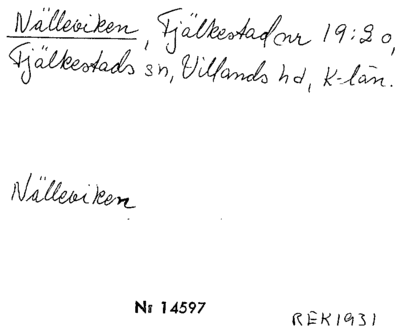 Nälleviken, Fjälkestad nr 19:20,
Fjälkestads sn, Villands hd, K-län.
Nälleviken
Nº 14597
REK1931